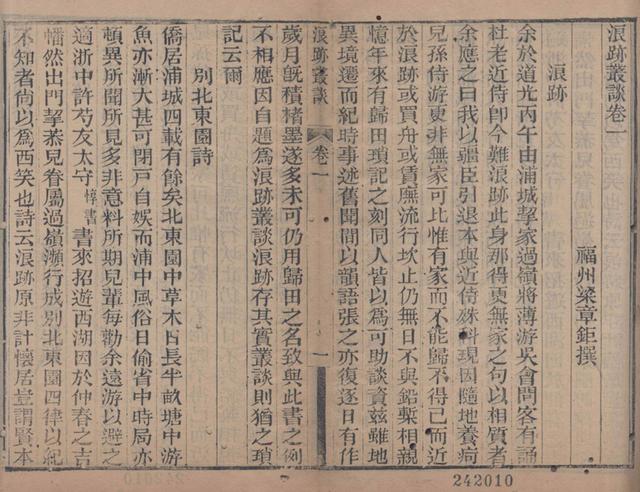 浪跡叢談卷一
福州梁章鉅撰
浪跡
余於道光丙午由浦城挈家過嶺將薄游吳會問客有誦
杜老近侍卽今難浪跡此身那得更無家之句以相質者
余應之曰我以疆臣引退本與近侍殊科現因隨地養疴
兒孫侍游更非無家可比惟有家而不能歸不得已而近
於浪跡或買舟或賃廡流行坎止仍無日不與鉛槧相親
憶年來有歸田瑣記之刻同人皆以爲可助談資茲雖地
異境遷而紀時事述舊聞間以韻語張之亦復逐日有作
歲月旣積楮墨遂多未可仍用歸田之名致與此書之例
不相應因自題爲浪跡叢談浪跡存其實叢談則猶之瑣
記云爾
浪跡叢談
卷一
一
別北東園詩
僑居浦城四載有餘矣北東園中草木日長半畝塘中游
魚亦漸大甚可閉戸自娛而浦中風俗日偷省中時局亦
頓異所聞所見多非意料所期兒輩每勸余遠游以避之
適浙中許芍友太守惇書書來招遊西湖因於仲春之吉
幡然出門挈恭兒眷屬過嶺瀕行成別北東園四律以紀
不知者尚以爲西笑也詩云浪跡原非計懷居豈謂賢本
242010